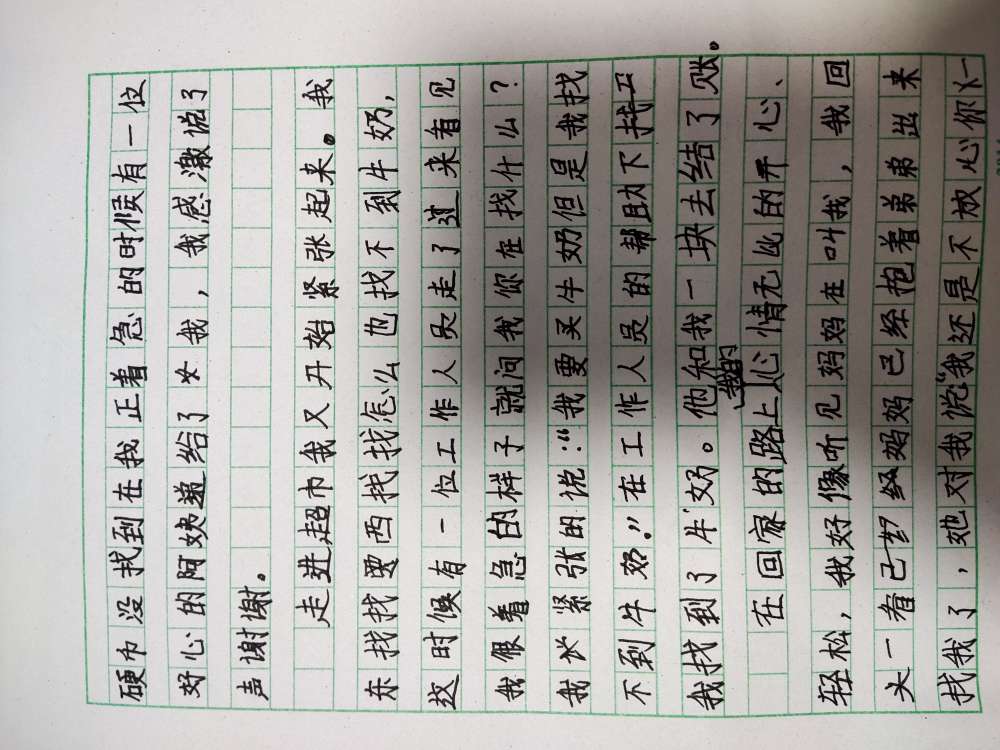 硬币没找到在我正着急的时候有一位
好心的阿姨递给了我，我感激说了
声谢谢。
走进超市我又开始紧张起来。我
东找找西找找怎么也找不到牛奶，
这时候有一位工作人员走了过来看见
我很着急的样子就问我你在找什么？
我紧张的说：“我要买牛奶但是我找
不到牛奶！”在工作人员的帮助下找
我找到了牛奶。他和我一块去结了账。
在回家的路上我的心情无比的开心、
轻松，我好像听见妈妈在叫我，我回
头一看己妈妈已经抱着弟弟出来
找我了，她对我说“我还是不放心你